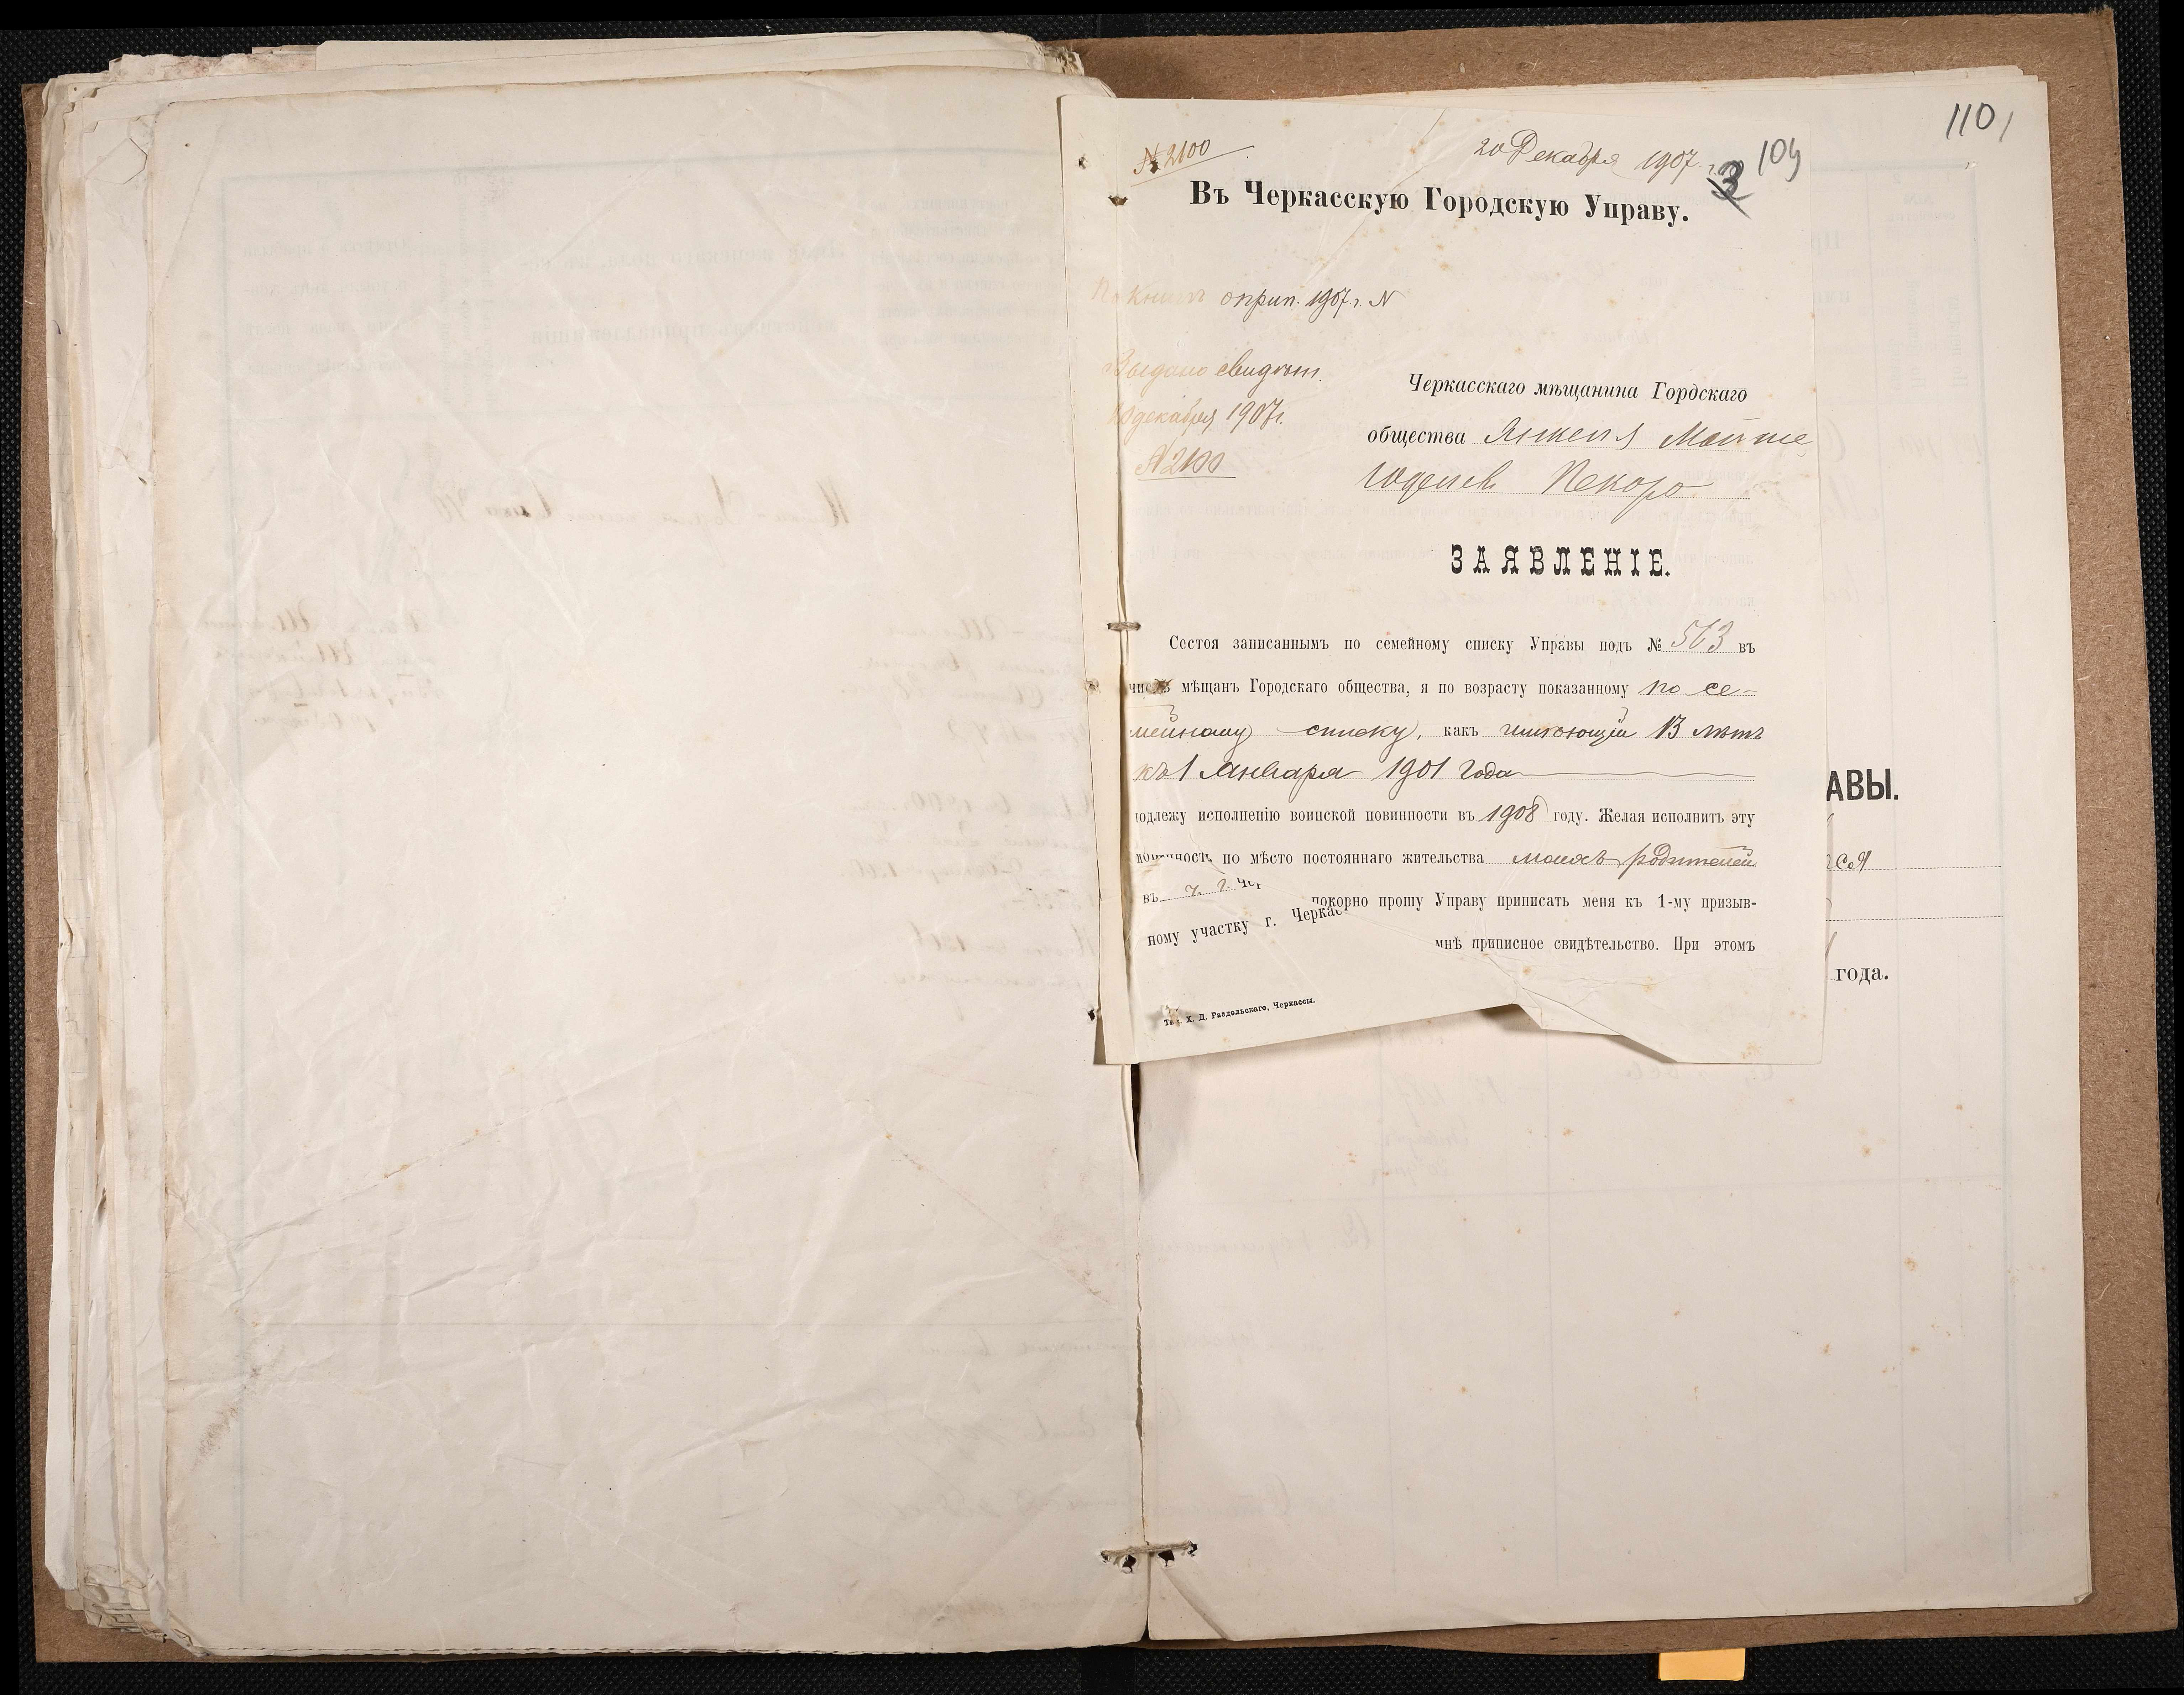 110
№ 2100
20 Декабря 1907 г.
3
109
Въ Черкасскую Городскую Управу.
По книгѣ о прип. 1907 г. №
Выдано свидѣт.
декабря 1907 г.
№ 2100
Черкасскаго мѣщанина Гордскаго
общества Янкеля Мошке
Юделев Пекоро
ЗАЯВЛЕНІЕ.
Состоя записаннымъ по семейному списку Управы подъ № 563 въ
числѣ мѣщанъ Городскаго общества, я по возрасту показанному по се-
мейному списку, какъ имѣющій 13 лѣтъ
къ 1 Января 1901 года
подлежу исполненію воинской повинности въ 1908 году. Желая исполнить эту
повинность по мѣсто постояннаго жительства моихъ родителей
въ г. Чер покорно прошу Управу приписать меня къ 1-му призыв-
ному участку г. Черкас мнѣ приписное свидѣтельство. При этомъ
Тип. Х. Д. Раздольскаго, Черкассы.
АВЫ.
ся
года.